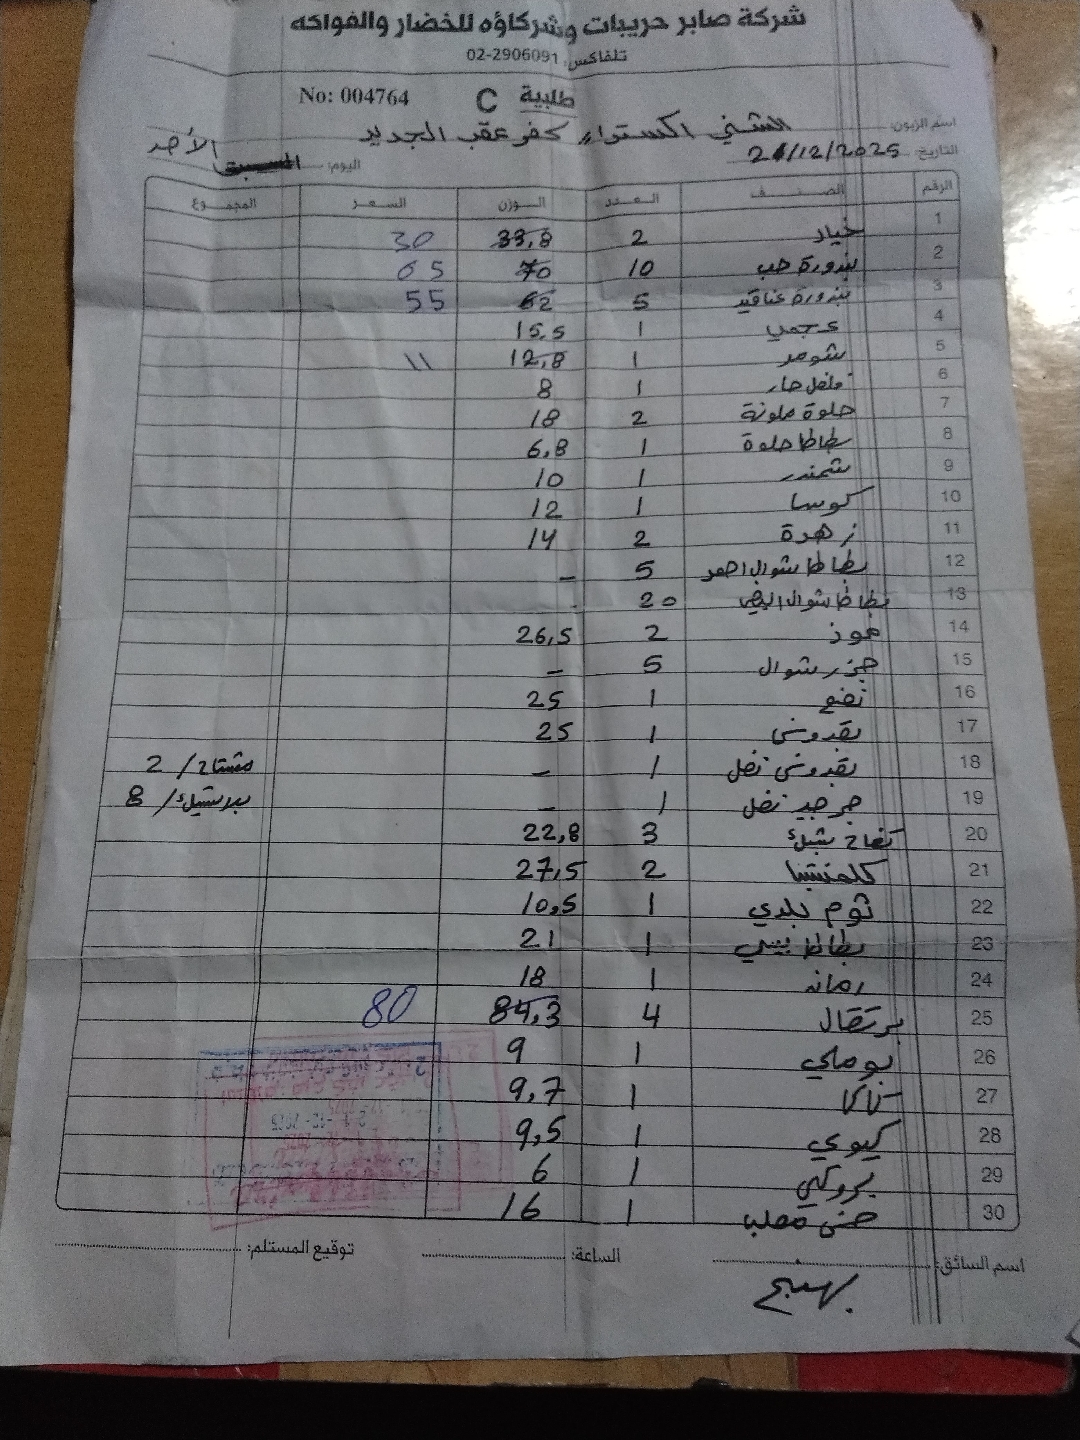 شركة صابر حريبات وشركاؤه للخضار والفواكه
تلفاكس: 02-2906091
No: 004764 C طلبية
اسم الزبون: الشني اكسترا، كفر عقب الجديد
التاريخ: 21/12/2025 اليوم: الأحد
الرقم الصنف العدد الوزن السعر المجموع
1 خيار 2 33,8 30
2 بندورة حب 10 70 65
3 بندورة عناقيد 5 62 55
4 عجمي 1 15,5
5 شومر 1 12,8 11
6 فلفل حار 1 8
7 حلوة ملونة 2 18
8 بطاطا حلوة 1 6,8
9 شمندر 1 10
10 كوسا 1 12
11 زهرة 2 14
12 بطاطا شوال احمر 5 –
13 بطاطا شوال ابيض 20
14 موز 2 26,5
15 جزر شوال 5 –
16 نعنع 1 25
17 بقدونس 1 25
18 بقدونس نعل 1 – مشتاح / 2
19 جرجير نعل 1 – بلاستيك / 8
20 تفاح شبك 3 22,8
21 كلمنتينا 2 27,5
22 ثوم بلدي 1 10,5
23 بطاطا بيبي 1 21
24 رمانه 1 18
25 برتقال 4 84,3 80
26 بوملي 1 9
27 كاكا 1 9,7
28 كيوي 1 9,5
29 بروكلي 1 6
30 خس 1 16
اسم السائق: الساعة: توقيع المستلم:
بهيج